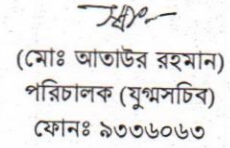 (মোঃ আতাউর রহমান)
পরিচালক (যুগ্মসচিব)
ফোনঃ ৯৩৩৬০৬৩